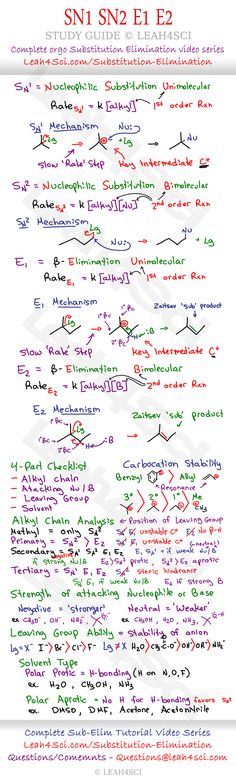 SN1 SN2 E1 E2
STUDY GUIDE © LEAH4SCI
Complete orgo Substitution Elimination video series
Leah4Sci.com/Substitution-Elimination
SN1 = Nucleophilic Substitution Unimolecular
Rate SN1 = k [alkyl] 1st order Rxn
SN1 Mechanism Nu:
Lg + Lg Nu
Slow 'Rate' Step Key Intermediate C+
SN2 = Nucleophilic Substitution Bimolecular
Rate SN2 = k [alkyl][Nu] 2nd order Rxn
SN2 Mechanism
Lg Nu: Nu + Lg
E1 = β-Elimination Unimolecular
Rate E1 = k [alkyl] 1st order Rxn
E1 Mechanism Zaitsev 'sub' product
Slow 'Rate' Step Key Intermediate C+
E2 = β-Elimination Bimolecular
Rate E2 = k [alkyl][B] 2nd order Rxn
E2 Mechanism Zaitsev 'sub' product
4-Part Checklist Carbocation Stability
- Alkyl chain Benzyl Allyl
- Attacking Nu/B Resonance
- Leaving Group 3° > 2° > 1° > Me
- Solvent
Alkyl Chain Analysis ← Position of Leaving Group
Methyl = only SN2
Primary = SN2 E2
Secondary = SN1 SN2 E1 E2
Tertiary = SN1 E1 E2 steric hindrance
SN1 E1 if weak Nu/B E2 if strong B
Strength of attacking Nucleophile or Base
Negative = 'stronger' Neutral = 'weaker'
Leaving Group Ability = Stability of anion
Solvent Type
Polar Protic = H-bonding (H on N,O,F)
ex H2O, CH3OH, NH3
Polar Aprotic = No H for H-bonding favors SN2
ex DMSO, DMF, Acetone, Acetonitrile
Complete Sub-Elim Tutorial Video Series
Leah4Sci.com/Substitution-Elimination
Questions/Comemnts - Questions@leah4sci.com
© LEAH4SCI